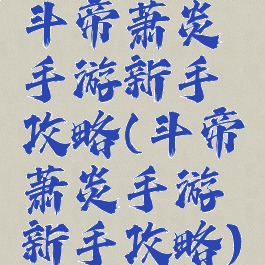 斗帝萧炎
手游新手
攻略(斗帝
萧炎手游
新手攻略)